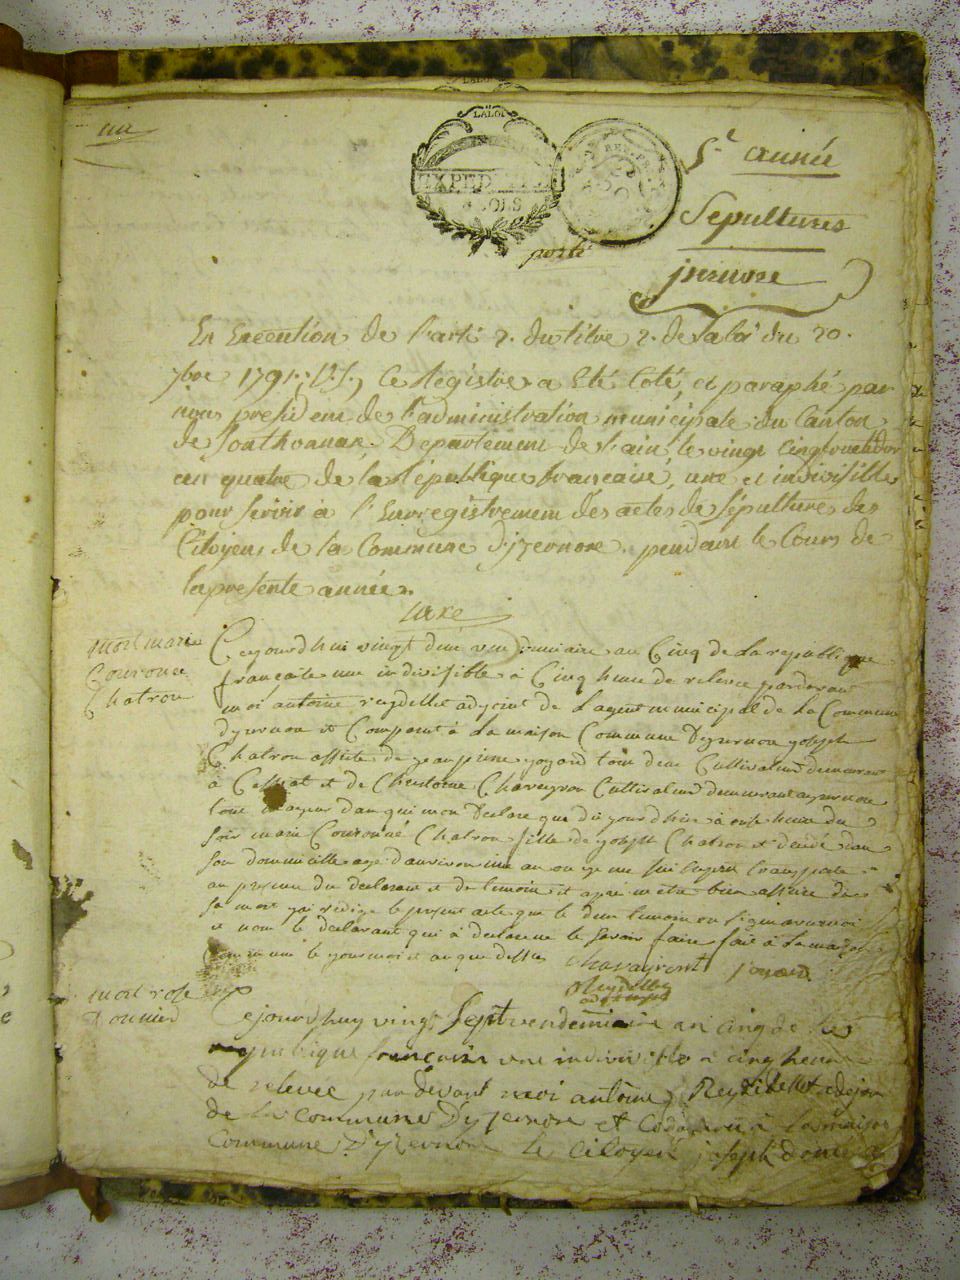 un
LALOI
REP. FR.
5.e année
Sépultures
jzernore
En Execution de l'arti 2. du titre 2. de la loi du 20.
7bre 1791. (V.S.) Ce Registre a Eté Coté, et paraphé par
nous president de l'administration municipale du Canton
de Sonthonnax, Département de l'ain, le vingt cinq fructidor
an quatre de la République française, une et indivisible
pour servir à l'Enregistrement des actes de Sépultures des
Citoyens de la Commune d'jzernore, pendant le Cours de
la présente année.
mort marie
Couronee
Chatron
Cejourdhui vingt deux vendemiaire an Cinq de La republique
française une indivisible à Cinq heure de relevee pardevant
moi antoine reydellet adjoint de L'agent municipal de La Commune
dyzernore et Comparut à La maison Commune Dyzernore joseph
Chatron assiste de jean pierre joyard tout deux Cultivateur demeurant
à Cessiat et de Chavayron Cultivateur demeurant ayzernore
tous majeur Declare que à onze heure du
soir marie Couronne Chatron fille de joseph Chatron est décédé dans
son dommicille age d'anviron une an je me suis transporté
au presence du declarant et de temoins et apres metre bien assure de
sa mort jai rédigé le present acte que le deux temoins on signe avec moi
et non le declarant qui à declare ne le savoir faire fait à La maison
Commune le jour mois et an que dessus Chavayront joyard
Reydellet
adjoint
mort rose
Cejourdhuy vingt Sept vendemiaire an cinq de la Re
publique françoise une indivisible a cinq heure
de relevee par devant moi antoine Reydellet adjoin
de la commune Dyzernore et Comparu à la maison
Commune D'yzernore le Citoyen joseph